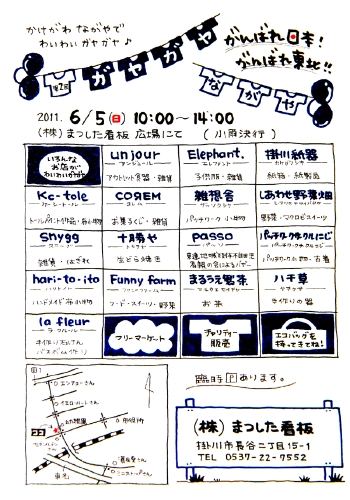 かけがわ ながやで
わいわい ガヤガヤ♪
がんばれ日本!
がんばれ東北!!
第2回
ガヤガヤ
ながや
2011. 6/5(日) 10:00〜14:00
(株)まつした看板 広場にて (小雨決行)
いろんな
お店が
わいわいガヤガヤ
un jour
アンジュール
アウトレット食器・雑貨
Elephant.
エレファント
子供服・雑貨
掛川紙器
カケガワシキ
紙箱・紙製品
Kc-tole
ケーシートール
COЯEM
コレム
お菓子くじ・雑貨
雑想舎
パッチワーク小物
しあわせ野菜畑
野菜・マクロビスイーツ
snygg
スニッグ
雑貨・はぎれ
十勝や
トカチヤ
生どら焼き
passo
パッソ
パッチワークキルトにじ
パッチワーク小物・古着
hari-to-ito
ハリトイト
ハンドメイド布小物
Funny farm
ファニーファーム
フード・スイーツ・野菜
まるうえ製茶
マルウエセイチャ
お茶
八千草
ヤチグサ
手作りの器
la fleur
ラ・フルール
フリーマーケット
チャリティー
販売
エコバッグを
持ってきてね!
臨時Pあります。
エンチョーさん
イエローハットさん
幼稚園
市役所
ミニストップさん
東名
(株)まつした看板
掛川市長谷二丁目15-1
TEL 0537-22-7552